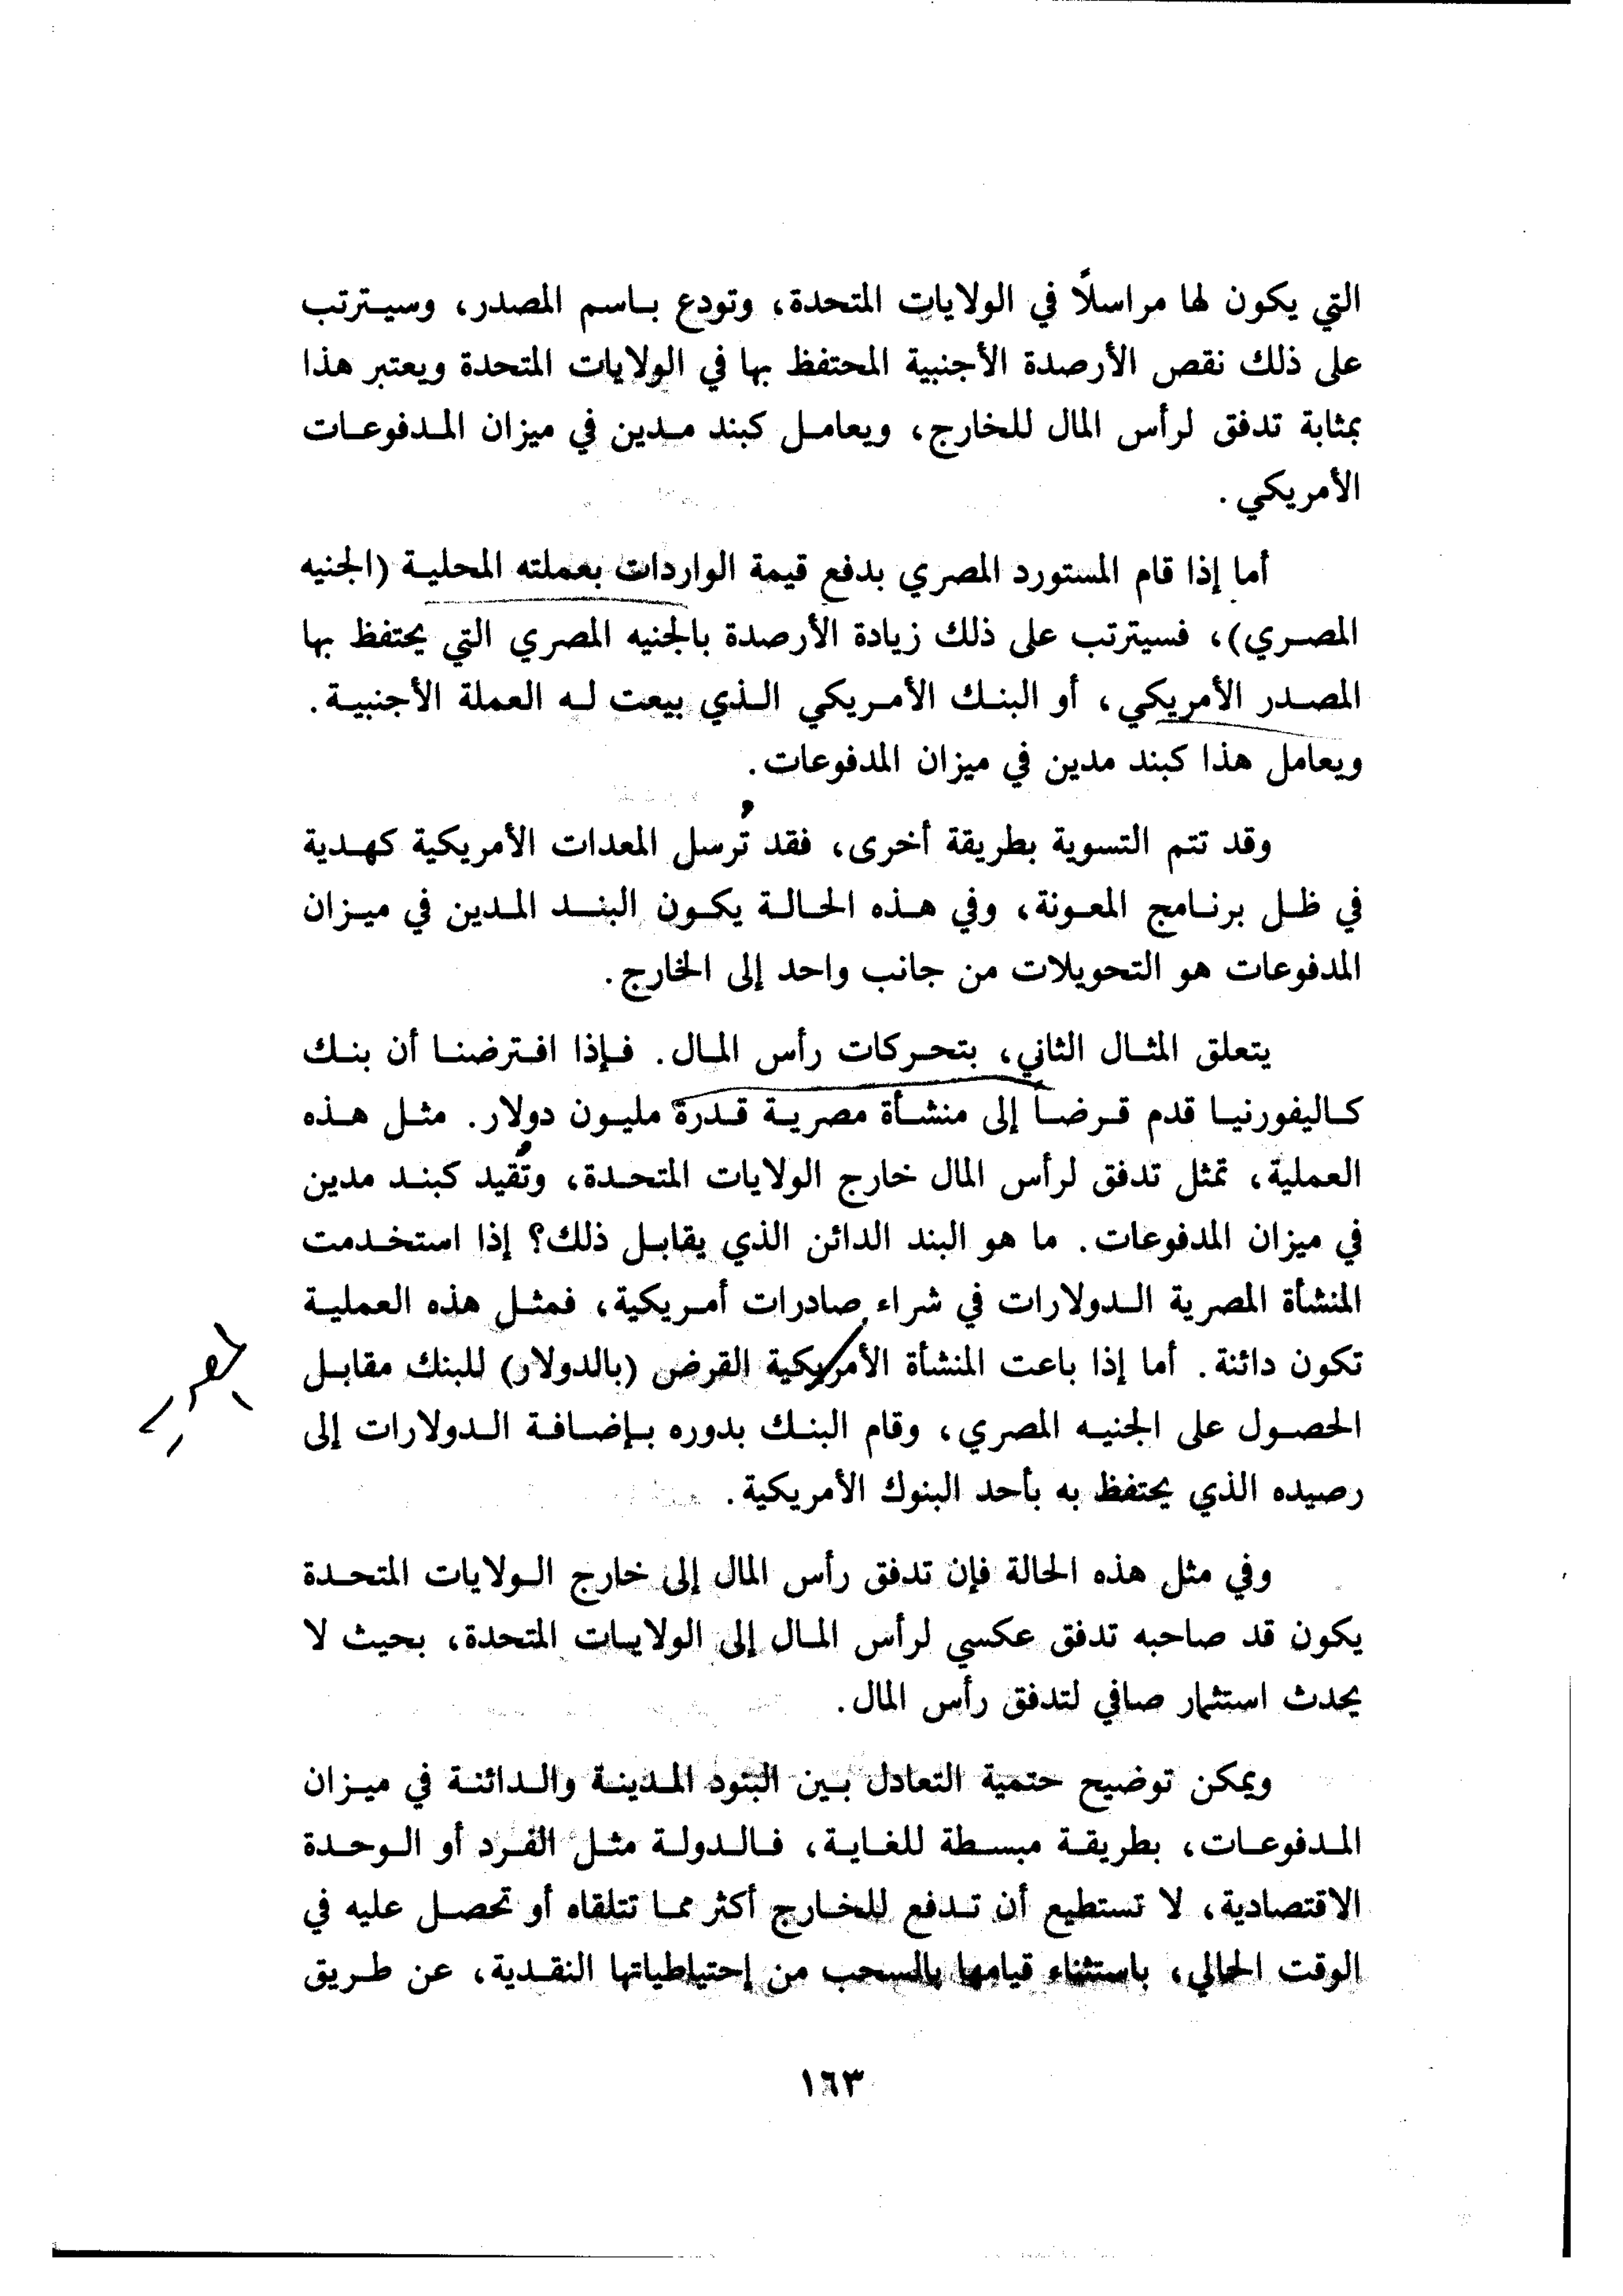 التي يكون لها مراسلاً في الولايات المتحدة، وتودع باسم المصدر، وسيترتب
على ذلك نقص الأرصدة الأجنبية المحتفظ بها في الولايات المتحدة ويعتبر هذا
بمثابة تدفق لرأس المال للخارج، ويعامل كبند مدين في ميزان المدفوعات
الأمريكي.
أما إذا قام المستورد المصري بدفع قيمة الواردات بعملته المحلية (الجنيه
المصري)، فسيترتب على ذلك زيادة الأرصدة بالجنيه المصري التي يحتفظ بها
المصدر الأمريكي، أو البنك الأمريكي الذي بيعت له العملة الأجنبية.
ويعامل هذا كبند مدين في ميزان المدفوعات.
وقد تتم التسوية بطريقة أخرى، فقد تُرسل المعدات الأمريكية كهدية
في ظل برنامج المعونة، وفي هذه الحالة يكون البند المدين في ميزان
المدفوعات هو التحويلات من جانب واحد إلى الخارج.
يتعلق المثال الثاني، بتحركات رأس المال. فإذا افترضنا أن بنك
كاليفورنيا قدم قرضاً إلى منشأة مصرية قدرة مليون دولار. مثل هذه
العملية، تمثل تدفق لرأس المال خارج الولايات المتحدة، وتُقيد كبند مدين
في ميزان المدفوعات. ما هو البند الدائن الذي يقابل ذلك؟ إذا استخدمت
المنشأة المصرية الدولارات في شراء صادرات أمريكية، فمثل هذه العملية
تكون دائنة. أما إذا باعت المنشأة الأمريكية القرض (بالدولار) للبنك مقابل
الحصول على الجنيه المصري، وقام البنك بدوره بإضافة الدولارات إلى
رصيده الذي يحتفظ به بأحد البنوك الأمريكية.
وفي مثل هذه الحالة فإن تدفق رأس المال إلى خارج الولايات المتحدة
يكون قد صاحبه تدفق عكسي لرأس المال إلى الولايات المتحدة، بحيث لا
يحدث استثمار صافي لتدفق رأس المال.
ويمكن توضيح حتمية التعادل بين البنود المدينة والدائنة في ميزان
المدفوعات، بطريقة مبسطة للغاية، فالدولة مثل الفرد أو الوحدة
الاقتصادية، لا تستطيع أن تدفع للخارج أكثر مما تتلقاه أو تحصل عليه في
الوقت الحالي، باستثناء قيامها بالسحب من إحتياطياتها النقدية، عن طريق
١٦٣